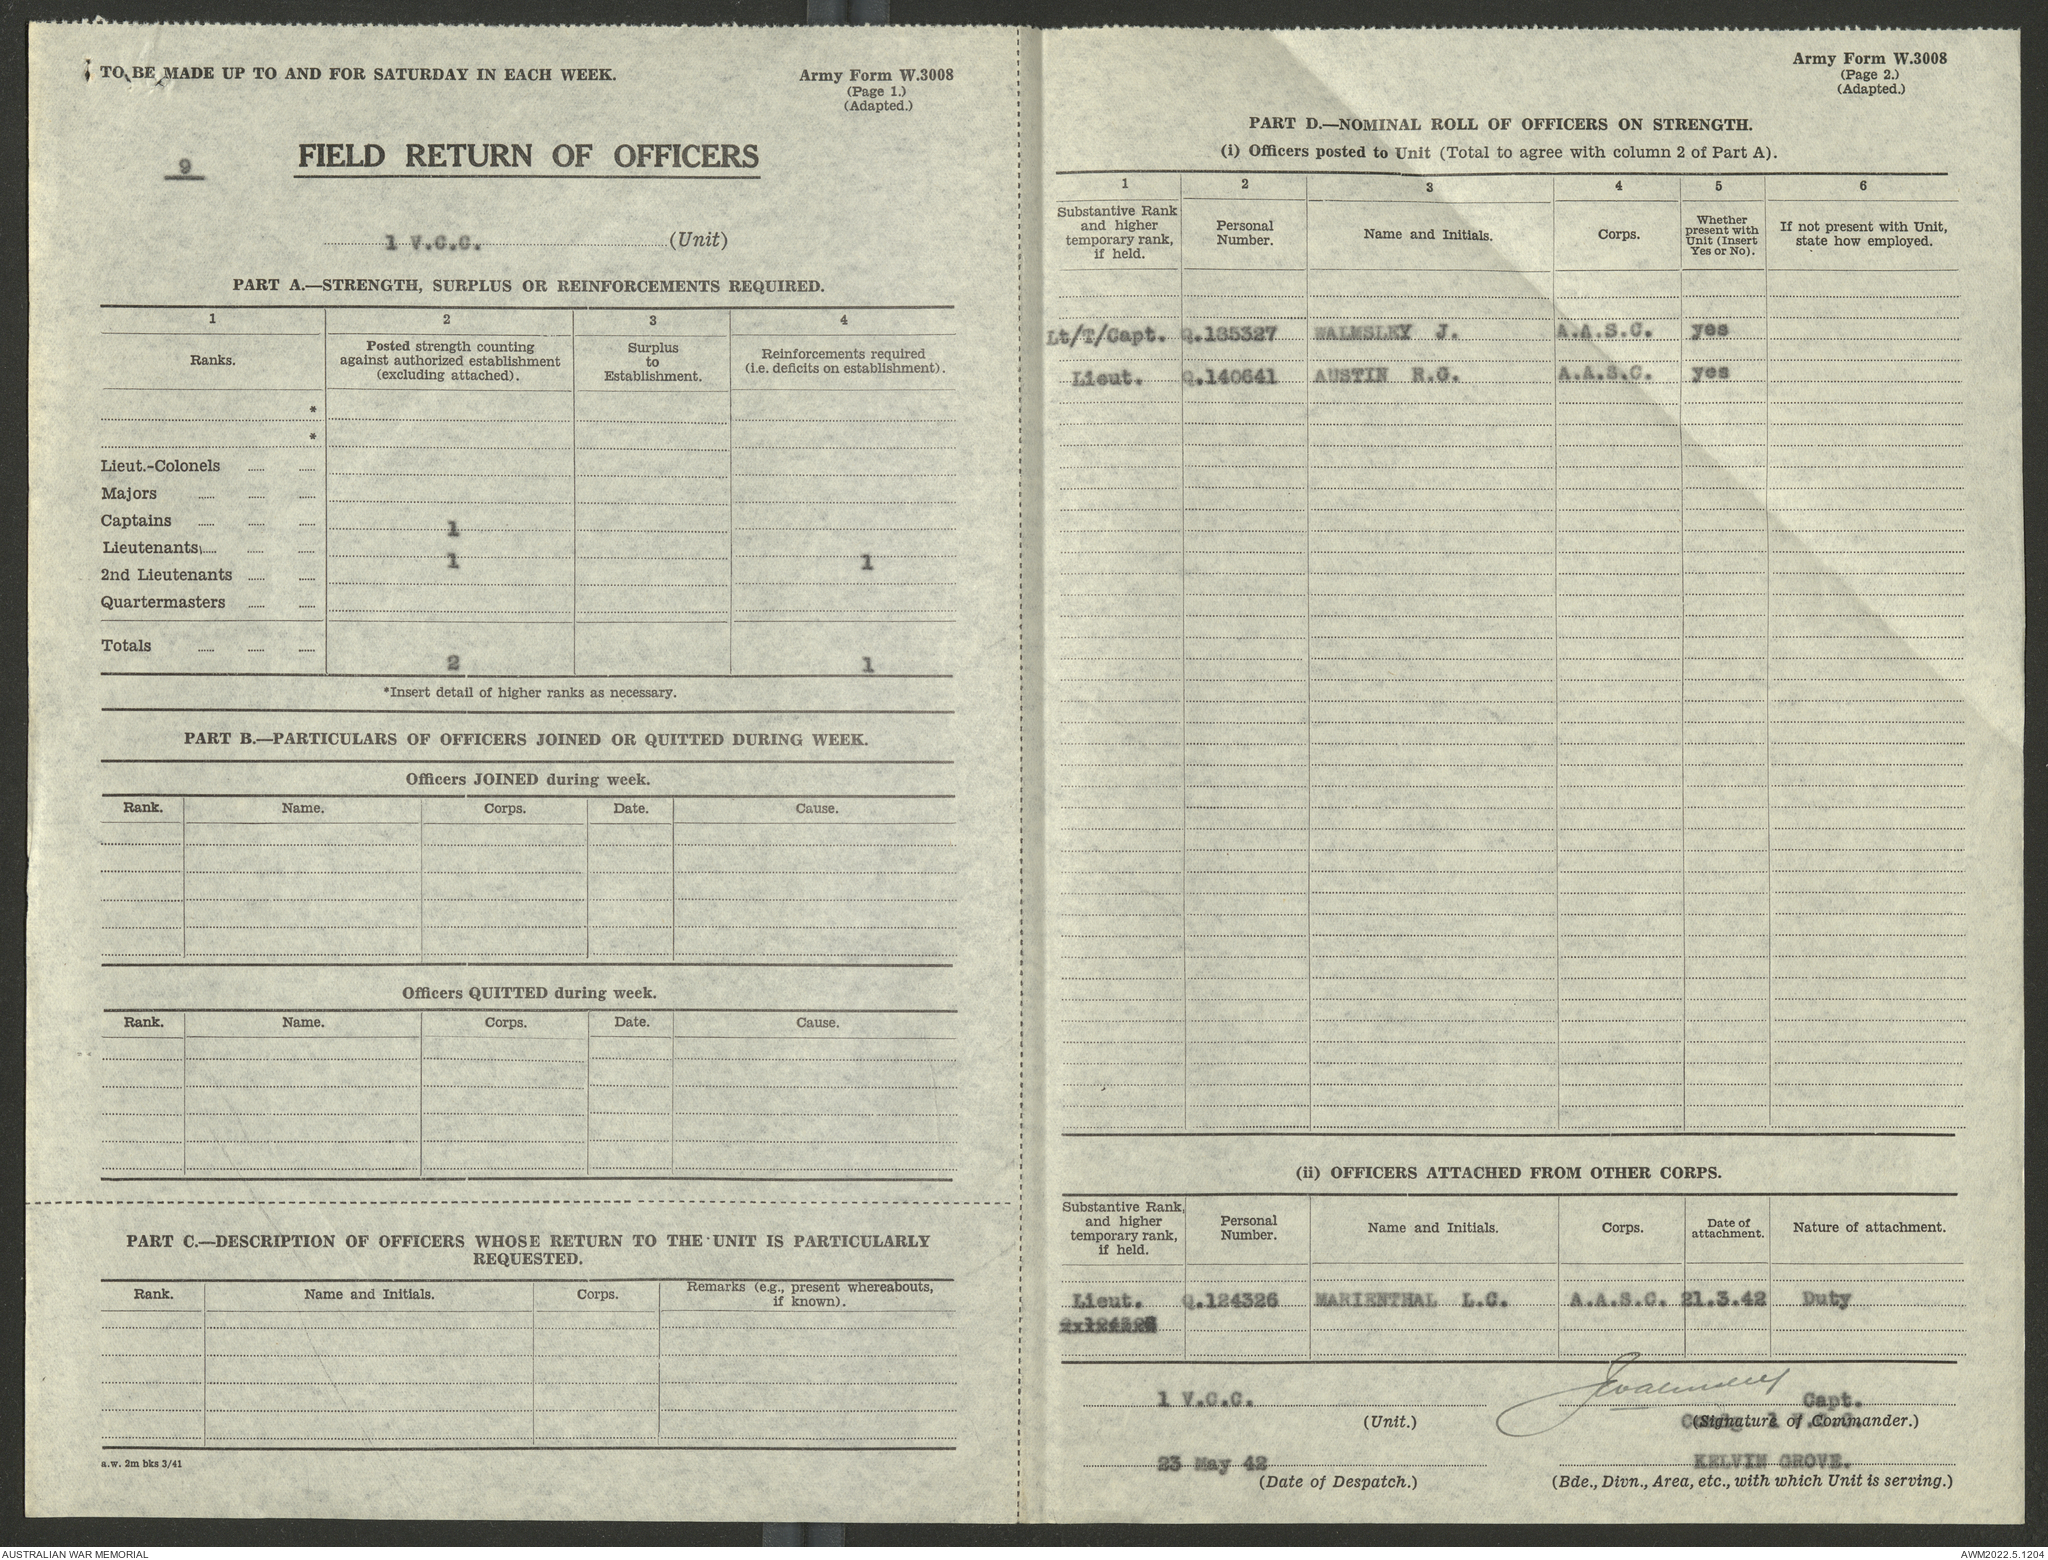 TO BE MADE UP TO AND FOR SATURDAY IN EACH WEEK.
Army Form W.3008
(Page 1.)
(Adapted.)
9
FIELD RETURN OF OFFICERS
1 V.C.C. (Unit)
PART A.—STRENGTH, SURPLUS OR REINFORCEMENTS REQUIRED.
1 2 3 4
Ranks. Posted strength counting against authorized establishment (excluding attached). Surplus to Establishment. Reinforcements required (i.e. deficits on establishment).
*
*
Lieut.-Colonels
Majors
Captains 1
Lieutenants 1 1
2nd Lieutenants
Quartermasters
Totals 2 1
*Insert detail of higher ranks as necessary.
PART B.—PARTICULARS OF OFFICERS JOINED OR QUITTED DURING WEEK.
Officers JOINED during week.
Rank. Name. Corps. Date. Cause.
Officers QUITTED during week.
Rank. Name. Corps. Date. Cause.
PART C.—DESCRIPTION OF OFFICERS WHOSE RETURN TO THE UNIT IS PARTICULARLY
REQUESTED.
Rank. Name and Initials. Corps. Remarks (e.g., present whereabouts, if known).
a.w. 2m bks 3/41
Army Form W.3008
(Page 2.)
(Adapted.)
PART D.—NOMINAL ROLL OF OFFICERS ON STRENGTH.
(i) Officers posted to Unit (Total to agree with column 2 of Part A).
1 2 3 4 5 6
Substantive Rank and higher temporary rank, if held. Personal Number. Name and Initials. Corps. Whether present with Unit (Insert Yes or No). If not present with Unit, state how employed.
Lt/T/Capt. Q.185327 WALMSLEY J. A.A.S.C. yes
Lieut. Q.140641 AUSTIN R.G. A.A.S.C. yes
(ii) OFFICERS ATTACHED FROM OTHER CORPS.
Substantive Rank, and higher temporary rank, if held. Personal Number. Name and Initials. Corps. Date of attachment. Nature of attachment.
Lieut. Q.124326 MARIENTHAL L.C. A.A.S.C. 21.3.42 Duty
1 V.C.C. JWalmsley Capt.
(Unit.) (Signature of Commander.)
23 May 42 KELVIN GROVE.
(Date of Despatch.) (Bde., Divn., Area, etc., with which Unit is serving.)
AUSTRALIAN WAR MEMORIAL AWM2022.5.1204